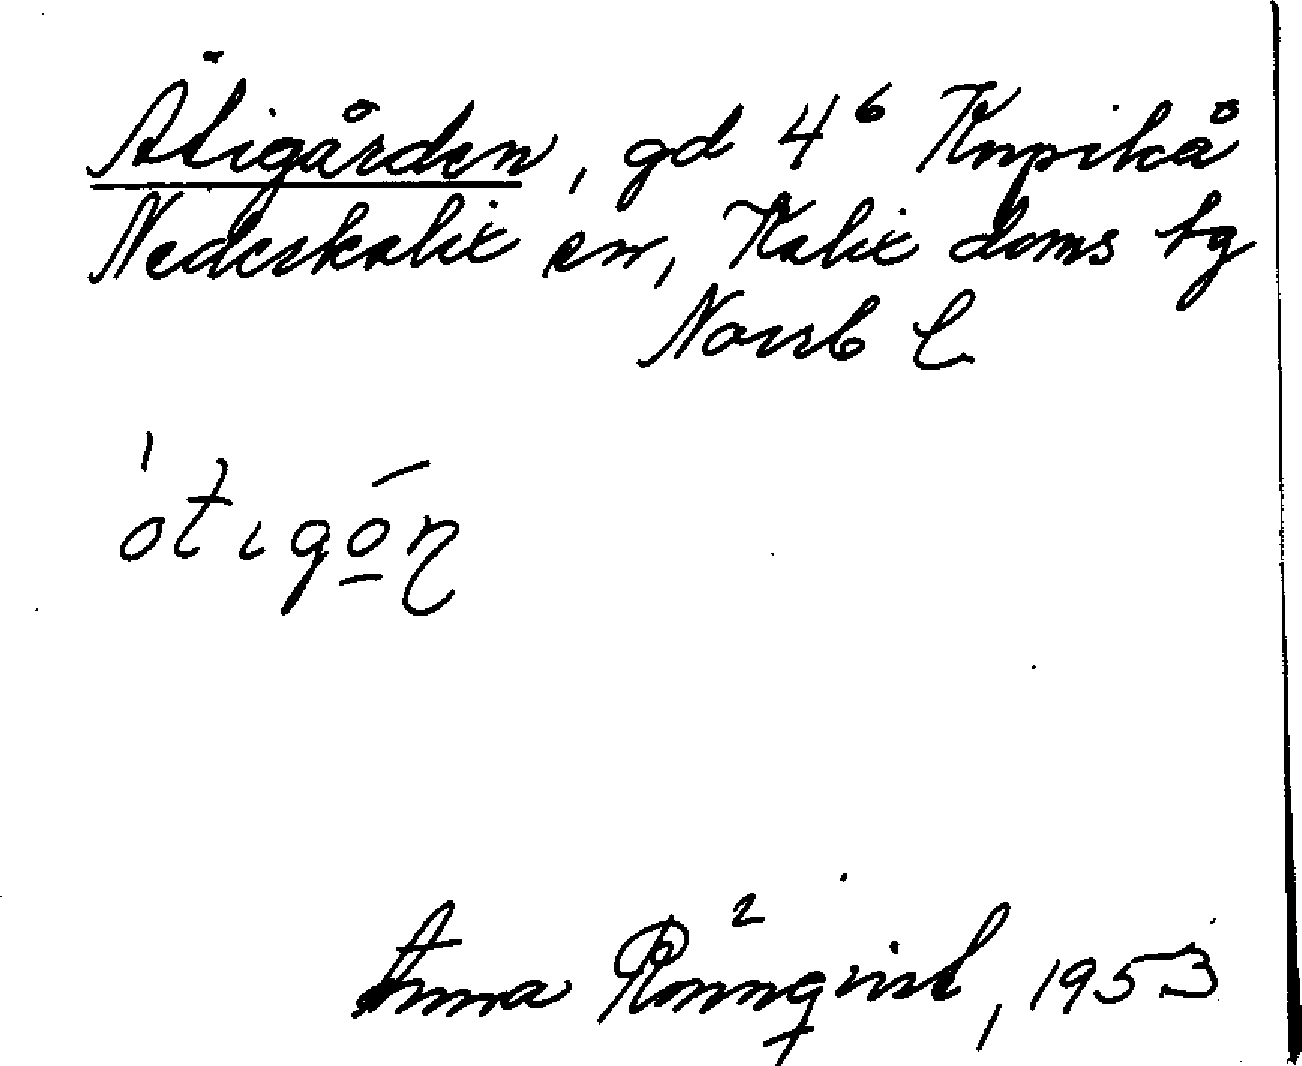 Åtigården, gd 4⁶ Knpikå
Nederkalix sn, Kalix doms tg
Norrb l
ótıgó̱n
Anna Rönnqvist, 1953